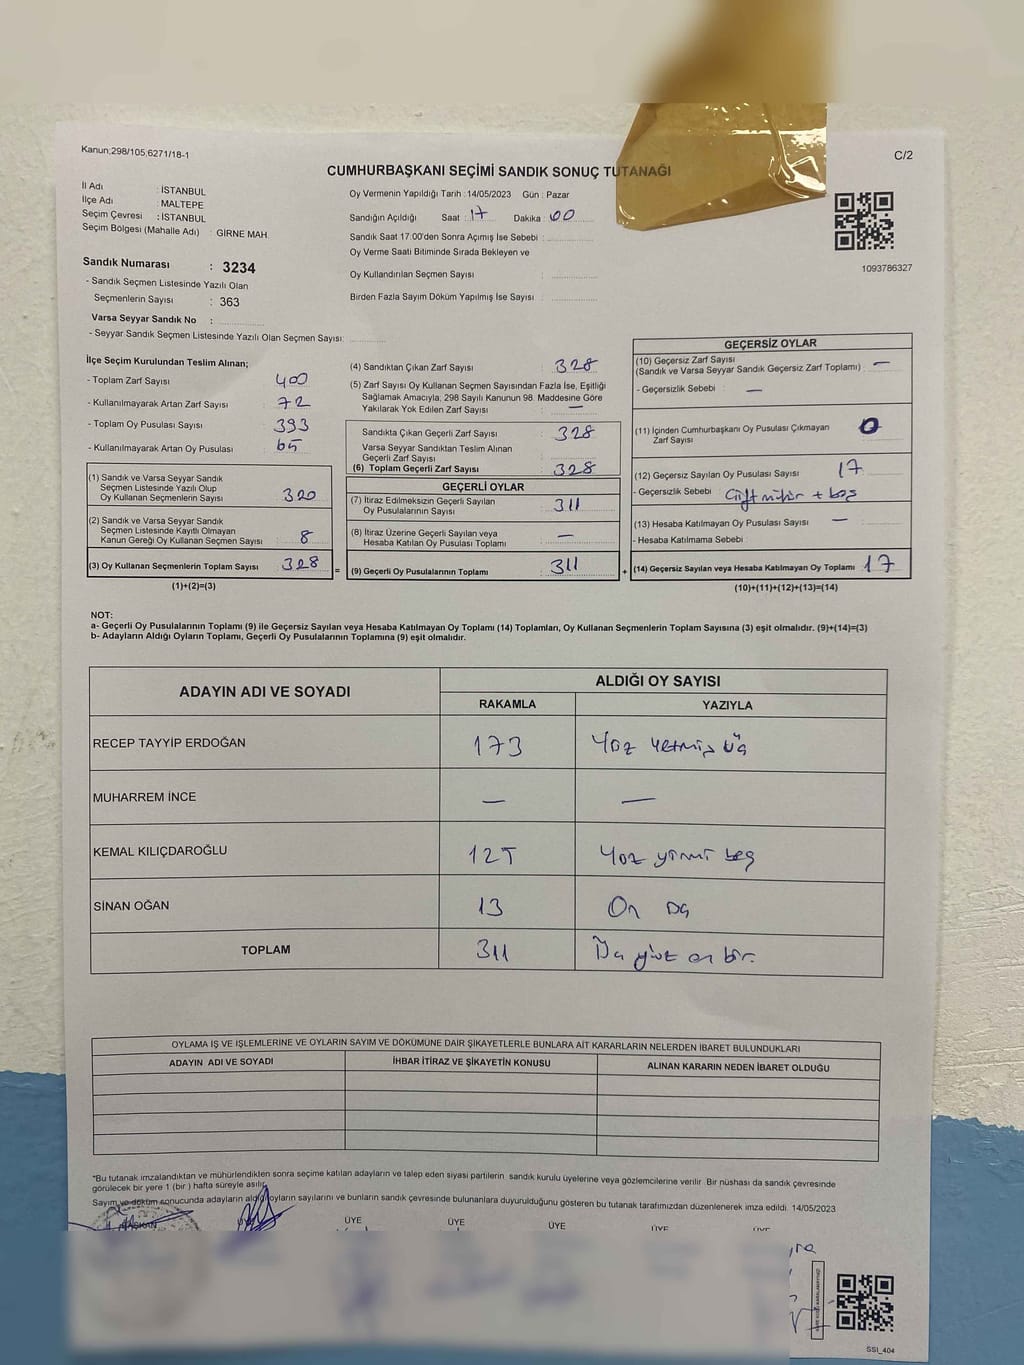 Kanun;298/105,6271/18-1
C/2
CUMHURBAŞKANI SEÇİMİ SANDIK SONUÇ TUTANAĞI
İl Adı : İSTANBUL
İlçe Adı : MALTEPE
Seçim Çevresi : İSTANBUL
Seçim Bölgesi (Mahalle Adı) : GİRNE MAH.
Oy Vermenin Yapıldığı Tarih : 14/05/2023 Gün : Pazar
Sandığın Açıldığı Saat : 17 Dakika : 00
Sandık Saat 17:00'den Sonra Açımış İse Sebebi :
Oy Verme Saati Bitiminde Sırada Bekleyen ve
Oy Kullandırılan Seçmen Sayısı :
Birden Fazla Sayım Döküm Yapılmış İse Sayısı :
1093786327
Sandık Numarası : 3234
- Sandık Seçmen Listesinde Yazılı Olan
Seçmenlerin Sayısı : 363
Varsa Seyyar Sandık No :
- Seyyar Sandık Seçmen Listesinde Yazılı Olan Seçmen Sayısı:
İlçe Seçim Kurulundan Teslim Alınan;
- Toplam Zarf Sayısı : 400
- Kullanılmayarak Artan Zarf Sayısı : 72
- Toplam Oy Pusulası Sayısı : 393
- Kullanılmayarak Artan Oy Pusulası : 65
(1) Sandık ve Varsa Seyyar Sandık
Seçmen Listesinde Yazılı Olup
Oy Kullanan Seçmenlerin Sayısı : 320
(2) Sandık ve Varsa Seyyar Sandık
Seçmen Listesinde Kayıtlı Olmayan
Kanun Gereği Oy Kullanan Seçmen Sayısı : 8
(3) Oy Kullanan Seçmenlerin Toplam Sayısı : 328
(1)+(2)=(3)
=
(4) Sandıktan Çıkan Zarf Sayısı : 328
(5) Zarf Sayısı Oy Kullanan Seçmen Sayısından Fazla İse, Eşitliği
Sağlamak Amacıyla; 298 Sayılı Kanunun 98. Maddesine Göre
Yakılarak Yok Edilen Zarf Sayısı : —
Sandıkta Çıkan Geçerli Zarf Sayısı : 328
Varsa Seyyar Sandıktan Teslim Alınan
Geçerli Zarf Sayısı :
(6) Toplam Geçerli Zarf Sayısı : 328
GEÇERLİ OYLAR
(7) İtiraz Edilmeksizin Geçerli Sayılan
Oy Pusulalarının Sayısı : 311
(8) İtiraz Üzerine Geçerli Sayılan veya
Hesaba Katılan Oy Pusulası Toplamı : —
(9) Geçerli Oy Pusulalarının Toplamı : 311
+
GEÇERSİZ OYLAR
(10) Geçersiz Zarf Sayısı
(Sandık ve Varsa Seyyar Sandık Geçersiz Zarf Toplamı) : —
- Geçersizlik Sebebi : —
(11) İçinden Cumhurbaşkanı Oy Pusulası Çıkmayan
Zarf Sayısı : 0
(12) Geçersiz Sayılan Oy Pusulası Sayısı : 17
- Geçersizlik Sebebi : Çift mühür + boş
(13) Hesaba Katılmayan Oy Pusulası Sayısı : —
- Hesaba Katılmama Sebebi :
(14) Geçersiz Sayılan veya Hesaba Katılmayan Oy Toplamı : 17
(10)+(11)+(12)+(13)=(14)
NOT:
a- Geçerli Oy Pusulalarının Toplamı (9) ile Geçersiz Sayılan veya Hesaba Katılmayan Oy Toplamı (14) Toplamları, Oy Kullanan Seçmenlerin Toplam Sayısına (3) eşit olmalıdır. (9)+(14)=(3)
b- Adayların Aldığı Oyların Toplamı, Geçerli Oy Pusulalarının Toplamına (9) eşit olmalıdır.
ADAYIN ADI VE SOYADI
ALDIĞI OY SAYISI
RAKAMLA YAZIYLA
RECEP TAYYİP ERDOĞAN 173 Yüz Yetmiş Üç
MUHARREM İNCE — —
KEMAL KILIÇDAROĞLU 125 Yüz yirmi beş
SİNAN OĞAN 13 On üç
TOPLAM 311 Üç yüz on bir.
OYLAMA İŞ VE İŞLEMLERİNE VE OYLARIN SAYIM VE DÖKÜMÜNE DAİR ŞİKAYETLERLE BUNLARA AİT KARARLARIN NELERDEN İBARET BULUNDUKLARI
ADAYIN ADI VE SOYADI İHBAR İTİRAZ VE ŞİKAYETİN KONUSU ALINAN KARARIN NEDEN İBARET OLDUĞU
*Bu tutanak imzalandıktan ve mühürlendikten sonra seçime katılan adayların ve talep eden siyasi partilerin sandık kurulu üyelerine veya gözlemcilerine verilir. Bir nüshası da sandık çevresinde
görülecek bir yere 1 (bir ) hafta süreyle asılır.
Sayım ve döküm sonucunda adayların aldığı oyların sayılarını ve bunların sandık çevresinde bulunanlara duyurulduğunu gösteren bu tutanak tarafımızdan düzenlenerek imza edildi. 14/05/2023
BAŞKAN ÜYE ÜYE ÜYE ÜYE ÜYE
SSI_404